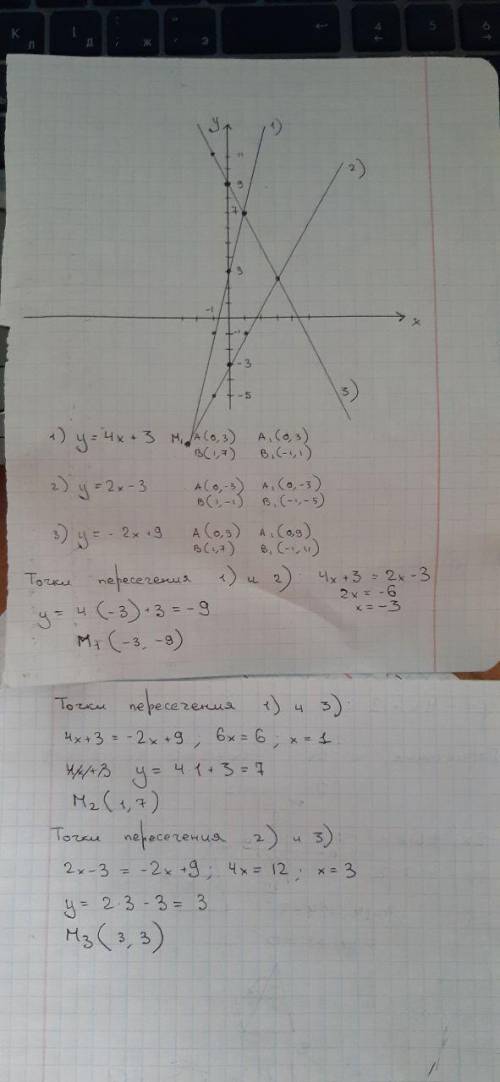 К
Л
Д
;
Ж
Э
4
5
6
y
1)
2)
11
9
7
3
-1
x
-1
-3
-5
3)
1) y = 4x + 3 M₁ A(0,3) A₁(0,3)
B(1,7) B₁(-1,1)
2) y = 2x - 3 A(0,-3) A₁(0,-3)
B(1,-1) B₁(-1,-5)
3) y = - 2x + 9 A(0,9) A₁(0,9)
B(1,7) B₁(-1,11)
Точки пересечения 1) и 2): 4x + 3 = 2x - 3
2x = -6
y = 4(-3) + 3 = -9 x = -3
M₁(-3, -9)
Точки пересечения 1) и 3):
4x+3 = -2x + 9; 6x = 6; x = 1
y = 4·1 + 3 = 7
M₂(1,7)
Точки пересечения 2) и 3):
2x-3 = -2x + 9; 4x = 12; x = 3
y = 2·3 - 3 = 3
M₃(3, 3)